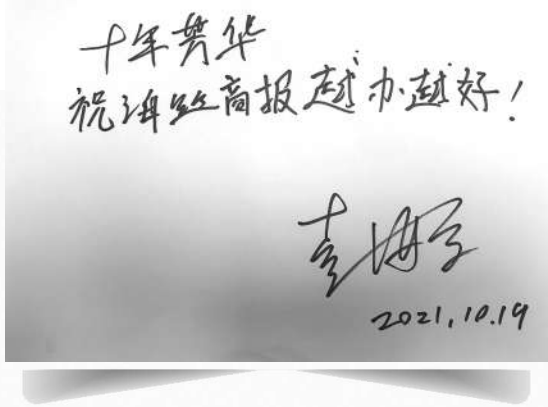 十年芳华
祝海丝商报越办越好！
2021.10.19